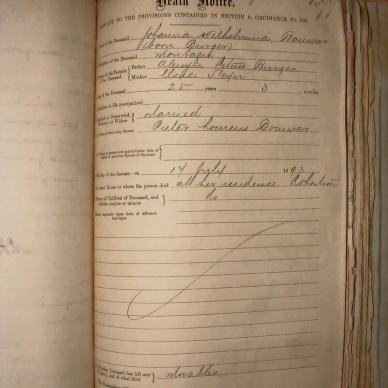 Death Notice.
TO THE PROVISIONS CONTAINED IN SECTION 9, ORDINANCE No. 104.
of the Deceased Johanna Wilhelmina Bouwer
(born Burger)
of the Deceased Montagu
of the Parents of the Deceased Father Petrus Burger
Mother Steyn
of the Deceased 25 years 3 months
in life (occupation)
Married or Unmarried, Widower or Widow Married
Name of Surviving Spouse Pieter Lourens Bouwer
Name or names and approximate date of death of previous Spouse or Spouses
The day of the decease: on 17 July 1893
House or where the person died at her residence Robertson
Names of Children of Deceased, and whether majors or minors No
Stating separately those born of different marriages.
Whether Deceased has left any Property, and of what kind Movables